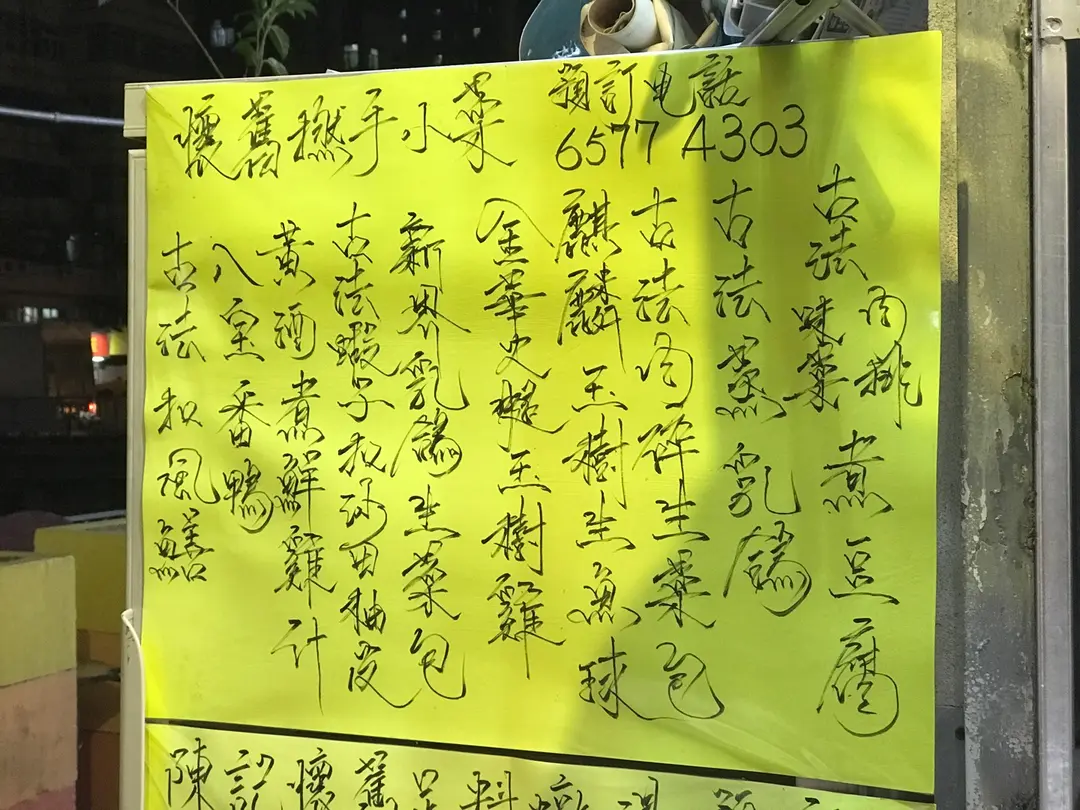 懷舊撚手小菜
預訂电話
6577 4303
古法味菜肉排煮豆腐
古法蒸乳鴿
古法肉碎生菜包
麒麟玉樹生魚球
金華火腿玉樹雞
新界乳鴿生菜包
古法蝦子扣沙田柚皮
黃酒煮鮮雞計
八宝番鴨
古法扣風鱔
陳記懷舊足料燉湯